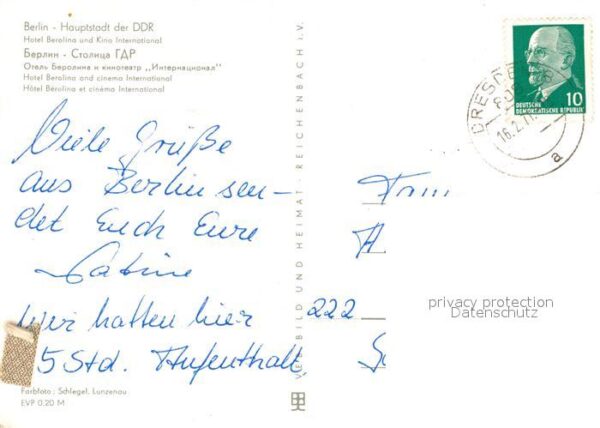 Berlin - Hauptstadt der DDR
Hotel Berolina und Kino International
Берлин - Столица ГДР
Отель Беролина и кинотеатр ,,Интернационал"
Hotel Berolina and cinema International
Hôtel Berolina et cinéma International
Viele Grüße
aus Berlin sen-
det Euch Eure
Sabine
wir hatten hier
5 Std. Aufenthalt.
Farbfoto: Schlegel, Lunzenau
EVP 0,20 M
VEB BILD UND HEIMAT REICHENBACH i. V.
DEUTSCHE
DEMOKRATISCHE REPUBLIK
10
DRESDE
16.2.
a
222
privacy protection
Datenschutz